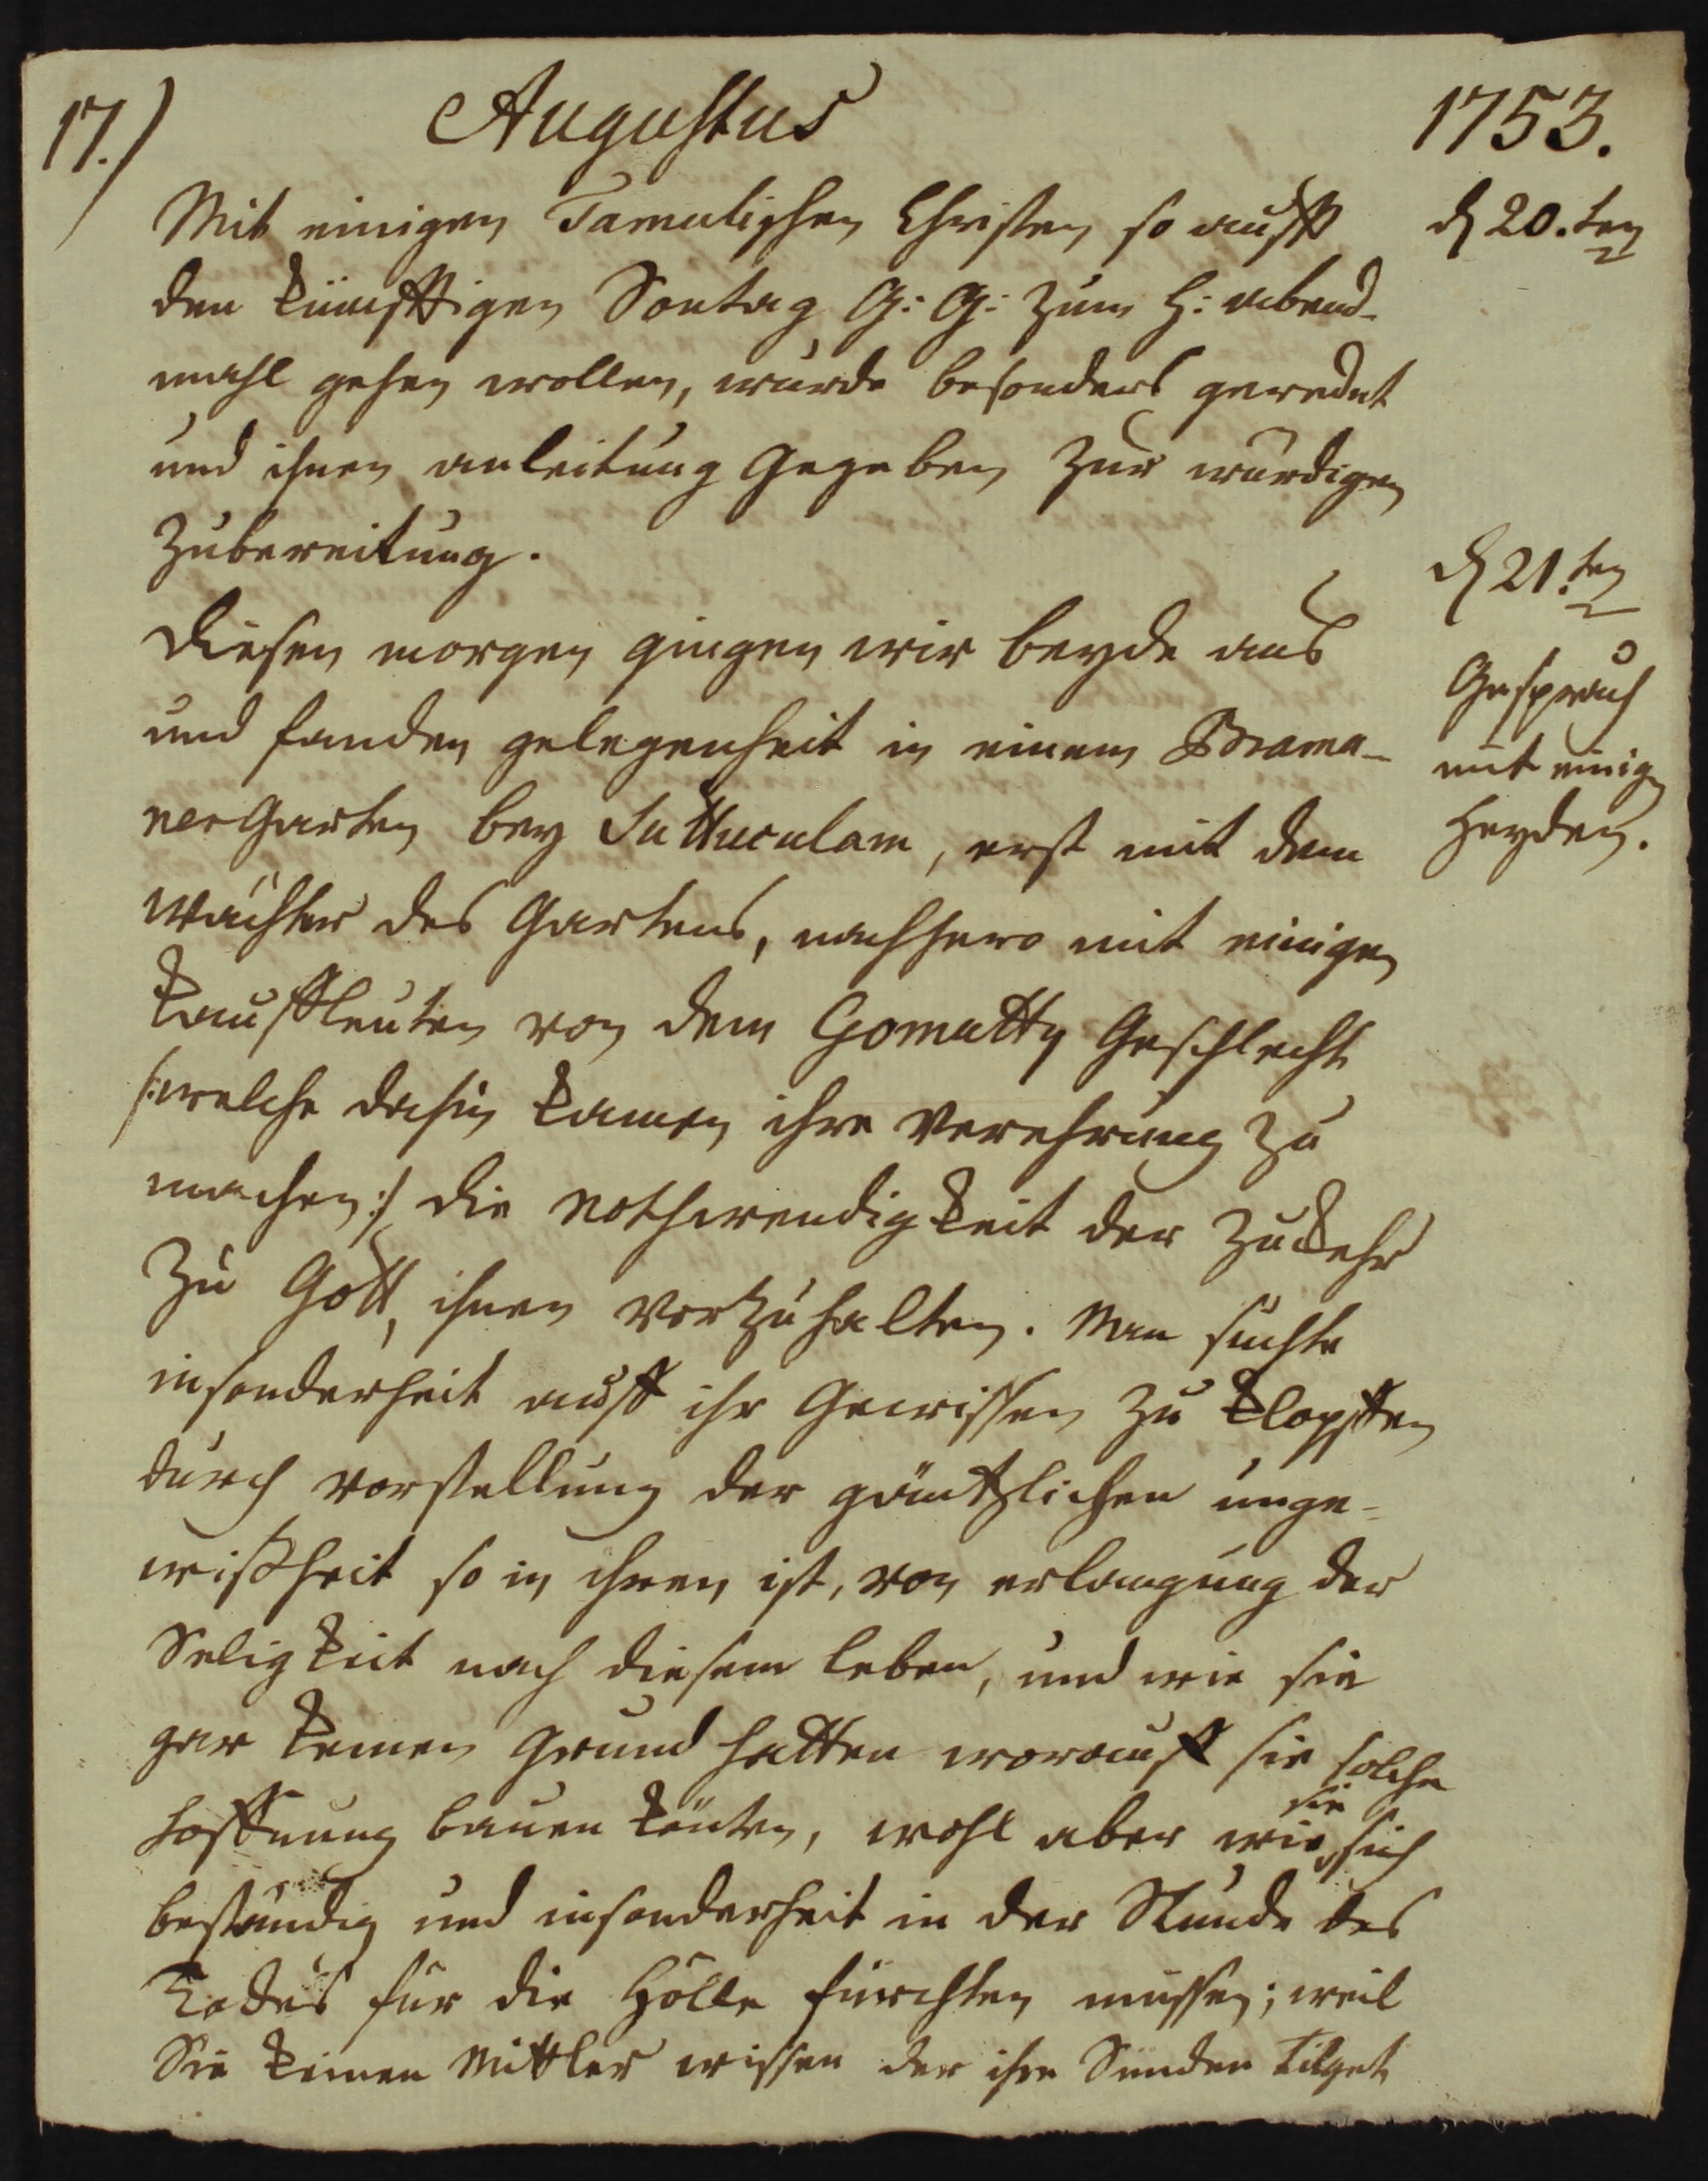 17.) Augustus 1753.
Mit einigen Tamulischen Christen so auff
d 20.ten
den künfftigen Sontag G: G: zum H: abend-
mahl gehen wollen, wurde besonders geredet
und ihnen anleitung Gegeben zur würdigen
Zubereitung.
d 21.ten
Diesen morgen gingen wir beyde aus
Gespräch
und fanden gelegenheit in einem Brama-
mit einig
Heyden.
ner Garten bey Suttuculam, erst mit dem
Wächter des Gartens, nachhero mit einigen
Kauffleuten von dem Gomutty Geschlecht
/:welche dahin kamen ihre Verehrung zu
machen:/ die nothwendigkeit der Zukehr
zu Gott, ihnen vorzuhalten. Man suchte
insonderheit auff ihr Gewissen zu klopffen
durch vorstellung der gäntzlichen unge-
wißheit so in ihnen ist, von erlangung der
Seligkeit nach diesem leben, und wie sie
gar keinen Grund hatten worauff sie solche
Hoffnung bauen könten, wohl aber wie sie sich
beständig und insonderheit in der Stunde des
Todes für die Hölle fürchten müssen; weil
Sie keinen Mittler wissen der ihre Sünden tilget